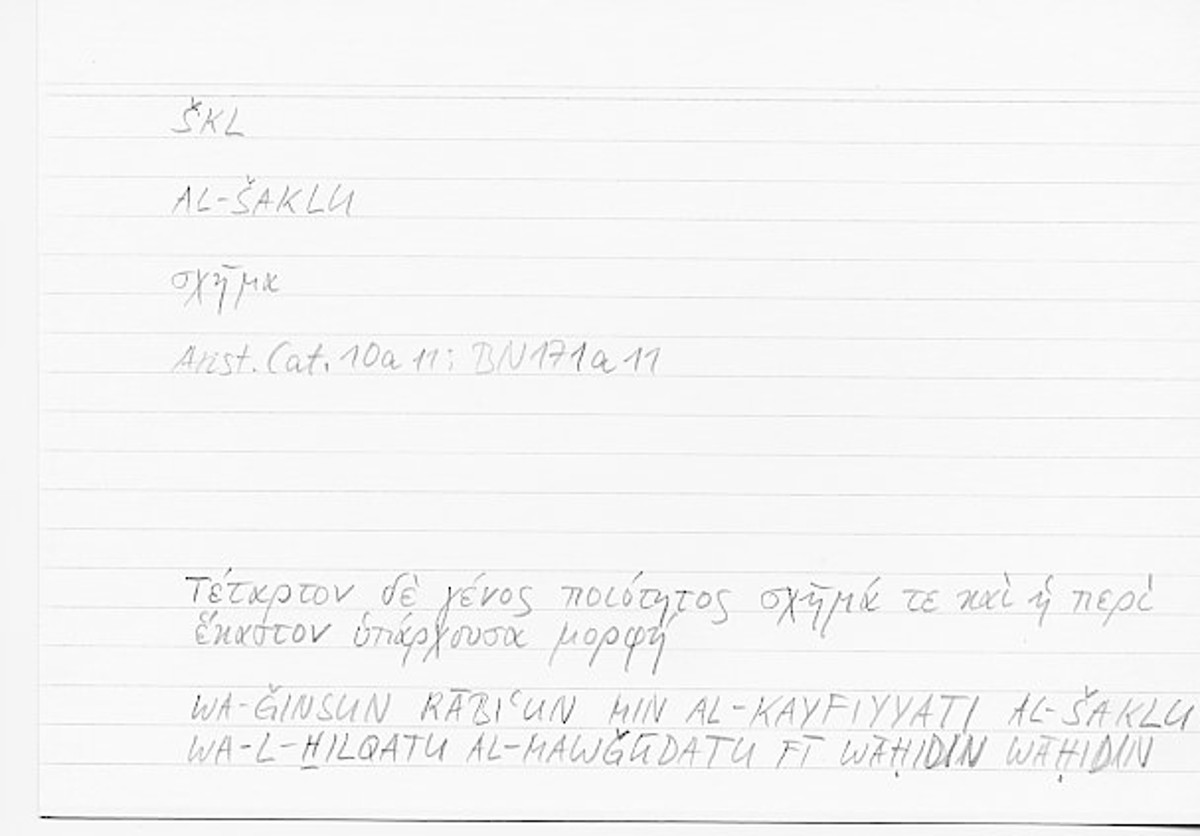 ŠKL
AL-ŠAKLU
σχῆμα
Arist. Cat. 10a 11; BN 171a 11
Τέταρτον δὲ γένος ποιότητος σχῆμά τε καὶ ἡ περὶ
ἕκαστον ὑπάρχουσα μορφή
WA-ǦINSUN RĀBIʿUN MIN AL-KAYFIYYATI AL-ŠAKLU
WA-L-H̱ILQATU AL-MAWǦŪDATU FĪ WĀḤIDIN WĀḤIDIN